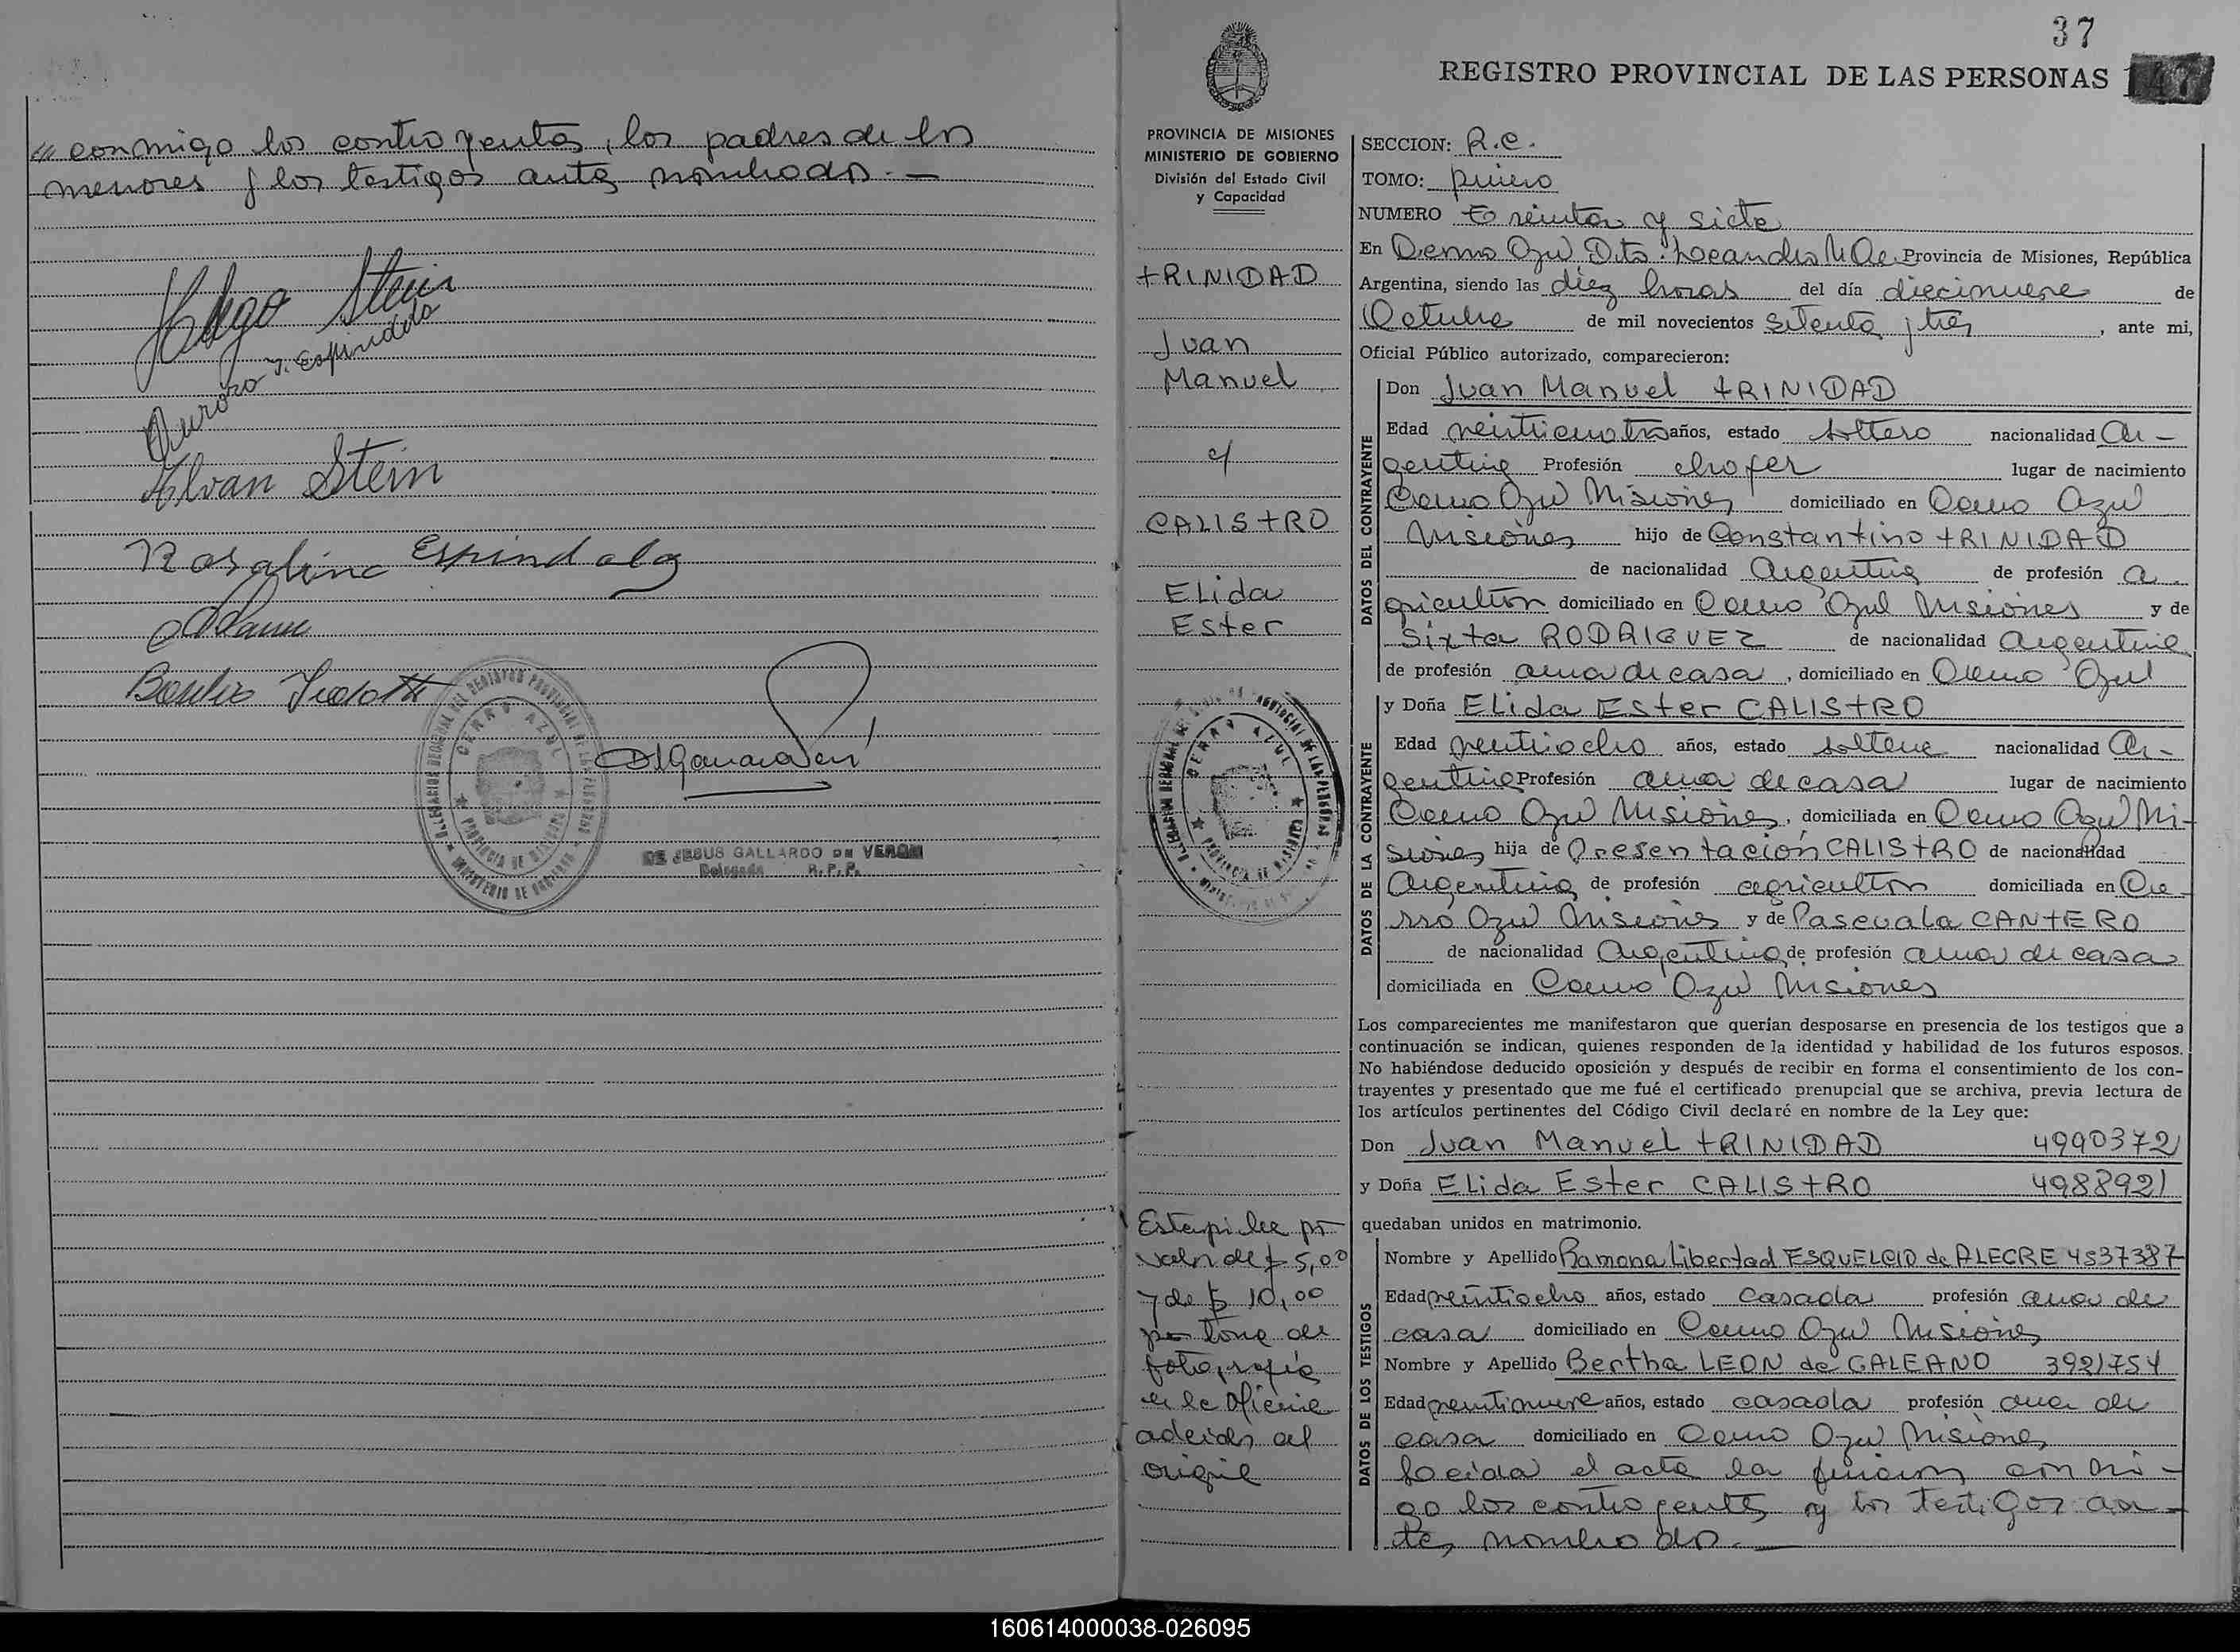 " conmigo los contrayentes, los padres de los
menores y los testigos antes nombrados.-
Hugo Stein
Aurora I. Espindola
Alvan Stein
Rosalina Espindola
Basilio
DELEGACION REGIONAL DEL REGISTRO PROVINCIAL DE LAS PERSONAS
CERRO AZUL
PROVINCIA DE MISIONES
MINISTERIO DE GOBIERNO
DE JESUS GALLARDO DE VERON
Delegada R.P.P.
37
REGISTRO PROVINCIAL DE LAS PERSONAS 147
PROVINCIA DE MISIONES
MINISTERIO DE GOBIERNO
División del Estado Civil
y Capacidad
TRINIDAD
Juan
Manuel
c/
CALISTRO
Elida
Ester
CERRO AZUL
Estampilla por
valor de $ 5,00
y de $ 10,00
por toma de
fotografía
en la Oficina
original
SECCION: R.C.
TOMO: primero
NUMERO Treinta y siete
En Cerro Azul Dto. Leandro N. Ale Provincia de Misiones, República
Argentina, siendo las diez horas del día diecinueve de
Octubre de mil novecientos setenta y tres, ante mi,
Oficial Público autorizado, comparecieron:
DATOS DEL CONTRAYENTE
Don Juan Manuel TRINIDAD
Edad veinticuatro años, estado soltero nacionalidad Ar-
gentina Profesión chofer lugar de nacimiento
Cerro Azul Misiones domiciliado en Cerro Azul
Misiones hijo de Constantino TRINIDAD
de nacionalidad Argentina de profesión a
gricultor domiciliado en Cerro Azul Misiones y de
Sixta RODRIGUEZ de nacionalidad Argentina
de profesión ama de casa, domiciliado en Cerro Azul
DATOS DE LA CONTRAYENTE
y Doña Elida Ester CALISTRO
Edad veintiocho años, estado soltera nacionalidad Ar-
gentina Profesión ama de casa lugar de nacimiento
Cerro Azul Misiones, domiciliada en Cerro Azul Mi-
siones hija de Presentación CALISTRO de nacionalidad
Argentina de profesión agricultor domiciliada en Ce-
rro Azul Misiones y de Pascuala CANTERO
de nacionalidad Argentina de profesión ama de casa
domiciliada en Cerro Azul Misiones
Los comparecientes me manifestaron que querían desposarse en presencia de los testigos que a
continuación se indican, quienes responden de la identidad y habilidad de los futuros esposos.
No habiéndose deducido oposición y después de recibir en forma el consentimiento de los con-
trayentes y presentado que me fué el certificado prenupcial que se archiva, previa lectura de
los artículos pertinentes del Código Civil declaré en nombre de la Ley que:
Don Juan Manuel TRINIDAD 4990372
y Doña Elida Ester CALISTRO 4988921
quedaban unidos en matrimonio.
DATOS DE LOS TESTIGOS
Nombre y Apellido Ramona Libertad ESQUELCID de ALEGRE 4537387
Edad veintiocho años, estado casada profesión ama de
casa domiciliado en Cerro Azul Misiones
Nombre y Apellido Bertha LEON de GALEANO 3921754
Edad veintinueve años, estado casada profesión ama de
casa domiciliado en Cerro Azul Misiones
Leída el acta la firman conmi-
go los contrayentes y los testigos an-
tes nombrados.-
160614000038-026095